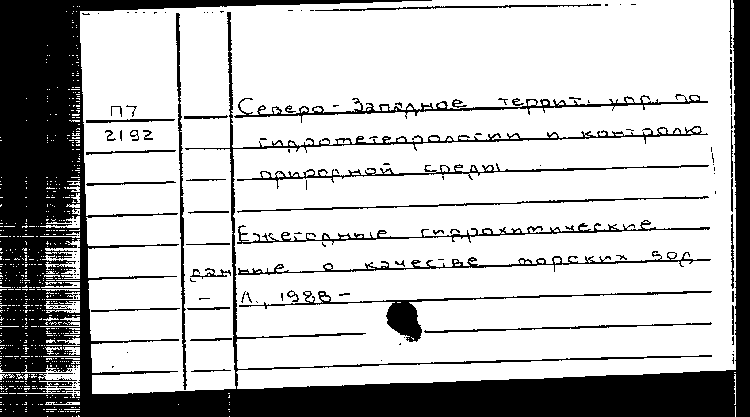 П7
2192
Северо-Западное террит. упр. по
гидрометеорологии и контролю
природной среды.
Ежегодные гидрохимические
данные о качестве морских вод
- Л., 1988-